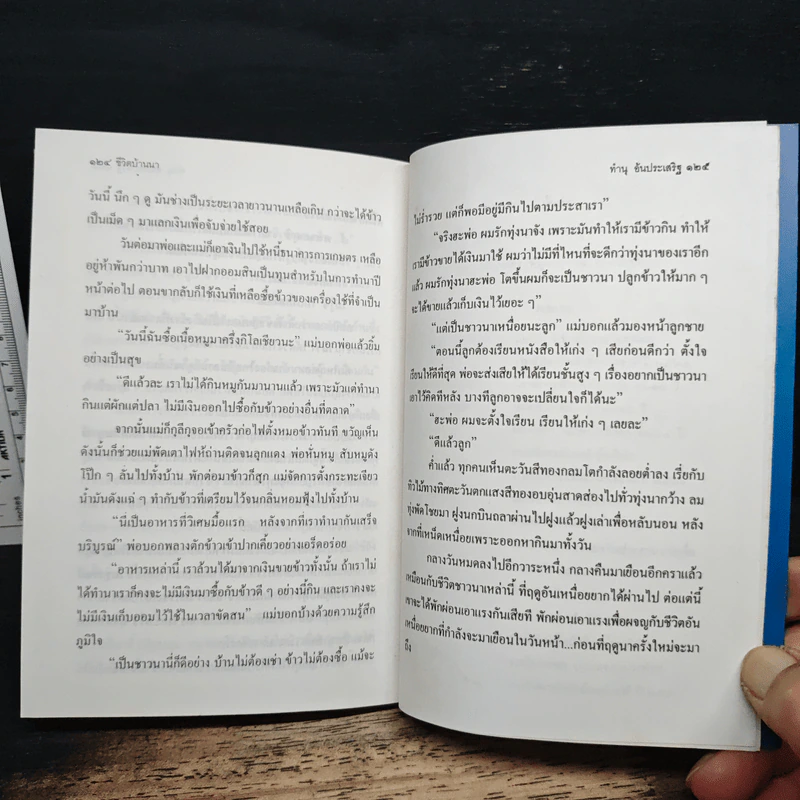 ๑๒๔ ชีวิตบ้านนา
วันนี้ นึก ๆ ดู มันช่างเป็นระยะเวลายาวนานเหลือเกิน กว่าจะได้ข้าว
เป็นเม็ด ๆ มาแลกเงินเพื่อจับจ่ายใช้สอย
วันต่อมาพ่อและแม่ก็เอาเงินไปใช้หนี้ธนาคารการเกษตร เหลือ
อยู่ห้าพันกว่าบาท เอาไปฝากออมสินเป็นทุนสำหรับในการทำนาปี
หน้าต่อไป ตอนขากลับก็ใช้เงินที่เหลือซื้อข้าวของเครื่องใช้ที่จำเป็น
มาบ้าน
“วันนี้ฉันซื้อเนื้อหมูมาครึ่งกิโลเชียวนะ” แม่บอกพ่อแล้วยิ้ม
อย่างเป็นสุข
“ดีแล้วละ เราไม่ได้กินหมูกันมานานแล้ว เพราะมัวแต่ทำนา
กินแต่ผักแต่ปลา ไม่มีเงินออกไปซื้อกับข้าวอย่างอื่นที่ตลาด”
จากนั้นแม่ก็กุลีกุจอเข้าครัวก่อไฟตั้งหมอข้าวทันที ขวัญเห็น
ดังนั้นก็ช่วยแม่พัดเตาไฟให้ถ่านติดจนลุกแดง พ่อหั่นหมู สับหมูดัง
โป๊ก ๆ ลั่นไปทั้งบ้าน พักต่อมาข้าวก็สุก แม่จัดการตั้งกระทะเจียว
น้ำมันดังแฉ่ ๆ ทำกับข้าวที่เตรียมไว้จนกลิ่นหอมฟุ้งไปทั้งบ้าน
“นี่เป็นอาหารที่วิเศษมื้อแรก หลังจากที่เราทำนากันเสร็จ
บริบูรณ์” พ่อบอกพลางตักข้าวเข้าปากเคี้ยวอย่างเอร็ดอร่อย
“อาหารเหล่านี้ เราล้วนได้มาจากเงินขายข้าวทั้งนั้น ถ้าเราไม่
ได้ทำนาเราก็คงจะไม่มีเงินมาซื้อกับข้าวดี ๆ อย่างนี้กิน และเราคงจะ
ไม่มีเงินเก็บออมไว้ใช้ในเวลาขัดสน” แม่บอกบ้างด้วยความรู้สึก
ภูมิใจ
“เป็นชาวนานี่ก็ดีอย่าง บ้านไม่ต้องเช่า ข้าวไม่ต้องซื้อ แม้จะ
ทำนุ อันประเสริฐ ๑๒๕
ไม่ร่ำรวย แต่ก็พอมีอยู่มีกินไปตามประสาเรา”
“จริงฮะพ่อ ผมรักทุ่งนาจัง เพราะมันทำให้เรามีข้าวกิน ทำให้
เรามีข้าวขายได้เงินมาใช้ ผมว่าไม่มีที่ไหนที่จะดีกว่าทุ่งนาของเราอีก
แล้ว ผมรักทุ่งนาฮะพ่อ โตขึ้นผมก็จะเป็นชาวนา ปลูกข้าวให้มาก ๆ
จะได้ขายแล้วเก็บเงินไว้เยอะ ๆ”
“แต่เป็นชาวนาเหนื่อยนะลูก” แม่บอกแล้วมองหน้าลูกชาย
“ตอนนี้ลูกต้องเรียนหนังสือให้เก่ง ๆ เสียก่อนดีกว่า ตั้งใจ
เรียนให้ดีที่สุด พ่อจะส่งเสียให้ได้เรียนชั้นสูง ๆ เรื่องอยากเป็นชาวนา
เอาไว้คิดทีหลัง บางทีลูกอาจจะเปลี่ยนใจก็ได้นะ”
“ฮะพ่อ ผมจะตั้งใจเรียน เรียนให้เก่ง ๆ เลยละ”
“ดีแล้วลูก”
ค่ำแล้ว ทุกคนเห็นตะวันสีทองกลมโตกำลังลอยต่ำลง เรี่ยกับ
ทิวไม้ทางทิศตะวันตกแสงสีทองอบอุ่นสาดส่องไปทั่วทุ่งนากว้าง ลม
ทุ่งพัดโชยมา ฝูงนกบินถลาผ่านไปฝูงแล้วฝูงเล่าเพื่อหลับนอน หลัง
จากที่เหน็ดเหนื่อยเพราะออกหากินมาทั้งวัน
กลางวันหมดลงไปอีกวาระหนึ่ง กลางคืนมาเยือนอีกคราแล้ว
เหมือนกับชีวิตชาวนาเหล่านี้ ที่ฤดูอันเหนื่อยยากได้ผ่านไป ต่อแต่นี้
เขาจะได้พักผ่อนเอาแรงกันเสียที พักผ่อนเอาแรงเพื่อผจญกับชีวิตอัน
เหนื่อยยากที่กำลังจะมาเยือนในวันหน้า...ก่อนที่ฤดูนาครั้งใหม่จะมา
ถึง